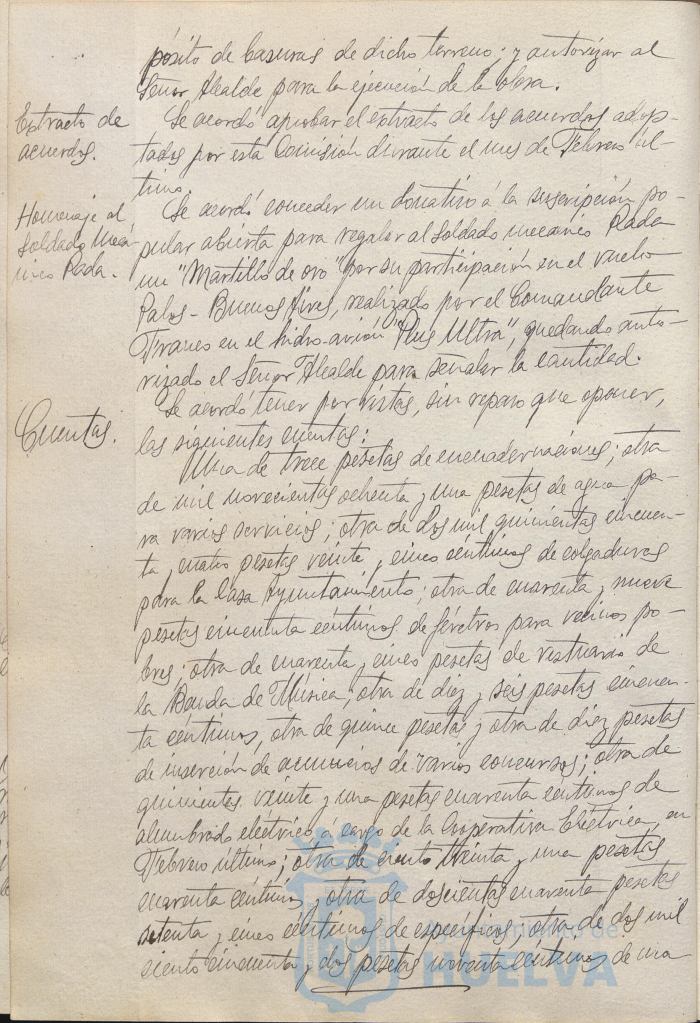 pósito de basuras de dicho terreno; y autorizar al
Señor Alcalde para la ejecución de la obra.
Extracto de
acuerdos.
Se acordó aprobar el extracto de los acuerdos adop-
tados por esta Comisión durante el mes de Febrero úl-
timo.
Homenaje al
soldado mecá
nico Rada.
Se acordó conceder un donativo á la suscripción po-
pular abierta para regalar al soldado mecanico Rada
un "Martillo de oro" por su participación en el vuelo
Palos - Buenos Aires, realizado por el Comandante
Franco en el hidro-avión "Plus Ultra", quedando auto-
rizado el Señor Alcalde para señalar la cantidad.
Cuentas.
Se acordó tener por vistas, sin reparo que oponer,
las siguientes cuentas:
Una de trece pesetas de encuadernaciones; otra
de mil novecientas ochenta y una pesetas de agua pa-
ra varios servicios; otra de dos mil quinientas cincuen-
ta y cuatro pesetas veinte y cinco céntimos de colgaduras
para la Casa Ayuntamiento; otra de cuarenta y nueve
pesetas cincuenta céntimos de féretros para vecinos po-
bres; otra de cuarenta y cinco pesetas de vestuario de
la Banda de Música; otra de diez y seis pesetas cincuen-
ta céntimos, otra de quince pesetas y otra de diez pesetas
de inserción de anuncios de varios concursos; otra de
quinientas veinte y una pesetas cuarenta céntimos de
alumbrado eléctrico á cargo de la Cooperativa Eléctrica, en
Febrero último; otra de ciento treinta y una pesetas
cuarenta céntimos y otra de doscientas cuarenta pesetas
setenta y cinco céntimos de específicos; otra de dos mil
ciento cincuenta y dos pesetas noventa céntimos de ma
Ayuntamiento de
HUELVA